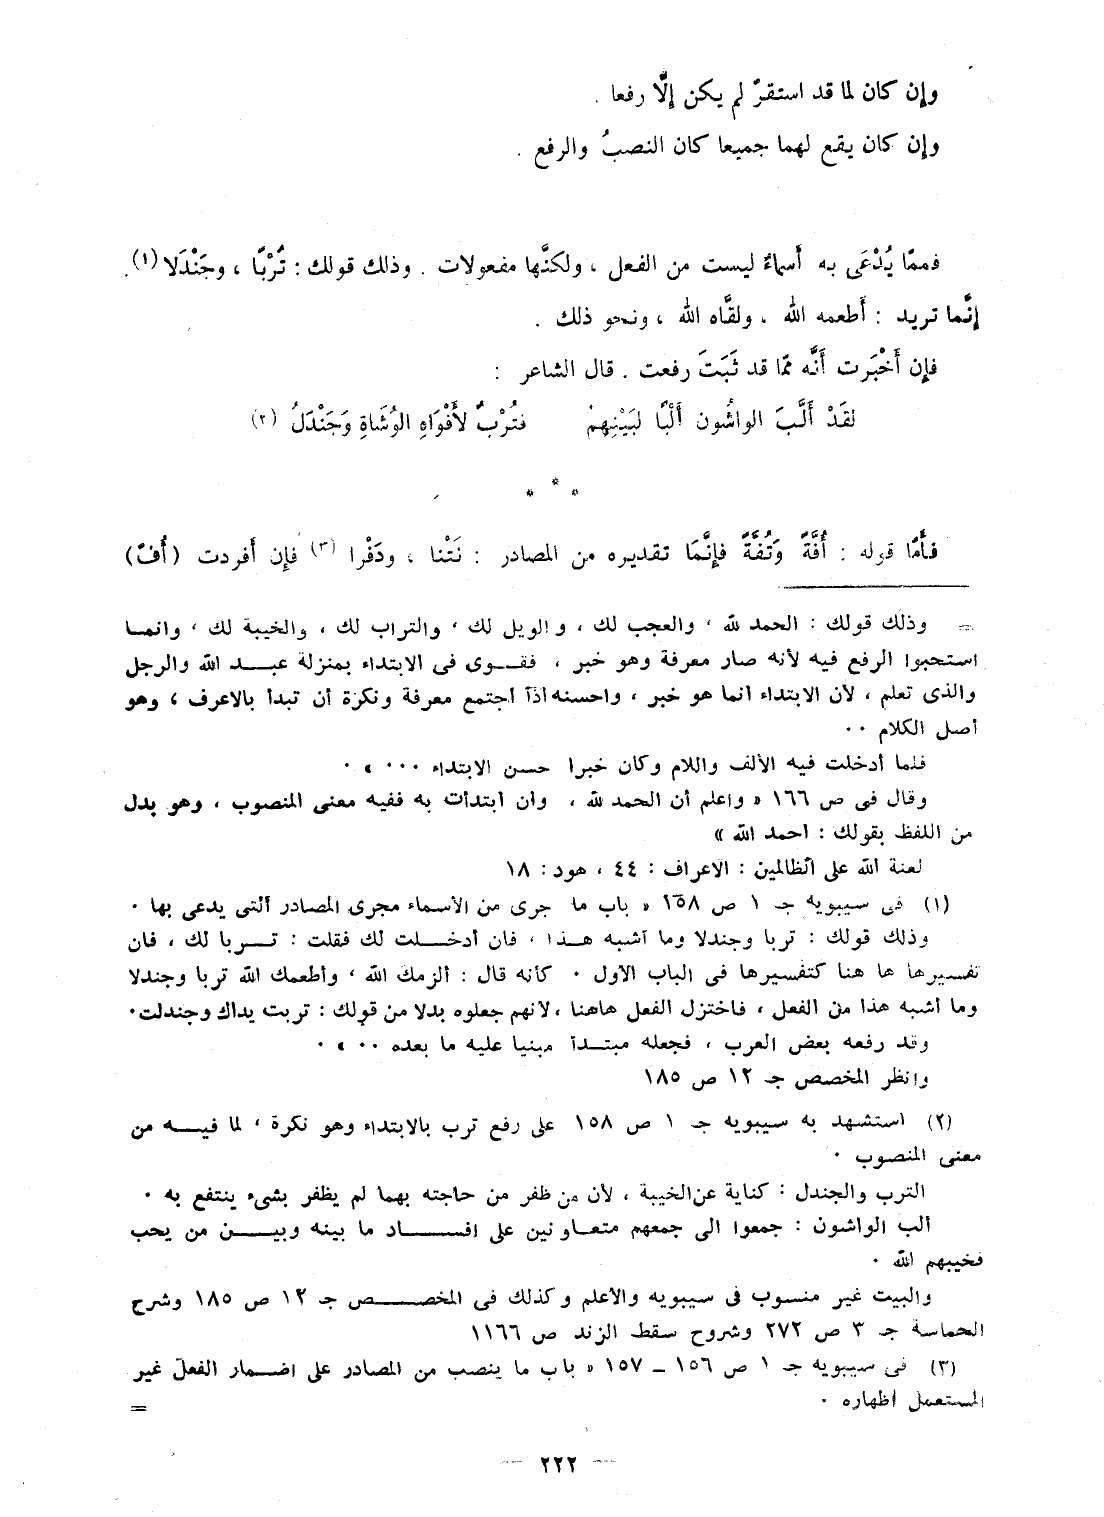 وإن كان لما قد استقرّ لم يكن إلَّا رفعا .
وإن كان يقع لهما جميعا كان النصبُ والرفع .
فممّا يُدْعَى به أَسماءٌ ليست من الفعل ، ولكنَّها مفعولات . وذلك قولك : تُرْبًا ، وجَنْدَلا (١) .
إنَّما تريد : أَطعمه الله ، ولقَّاه الله ، ونحو ذلك .
فإن أَخْبَرت أَنَّه ممّا قد ثَبَتَ رفعت . قال الشاعر :
لقَدْ أَلَّبَ الواشُون أَلْبًا لبَيْنِهِمْ فتُرْبٌ لأَفْوَاهِ الوُشَاةِ وَجَنْدَلُ (٢)
* * *
فأَمّا قوله : أُفَّةً وَتُفَّةً فإِنَّمَا تقديره من المصادر : نَتْنا ، ودَفْرا (٣) فإن أَفردت (أُفّ)
= وذلك قولك : الحمد لله ، والعجب لك ، والويل لك ، والتراب لك ، والخيبة لك ، وانمـا
استحبوا الرفع فيه لأنه صار معرفة وهو خبر ، فقـوى فى الابتداء بمنزلة عبـد الله والرجل
والذى تعلم ، لأن الابتداء انما هو خبر ، واحسنه اذا اجتمع معرفة ونكرة أن تبدأ بالاعرف ، وهو
أصل الكلام ٠٠
فلما أدخلت فيه الألف واللام وكان خبرا حسن الابتداء ٠٠٠ » ٠
وقال فى ص ١٦٦ « واعلم أن الحمد لله ، وان ابتدأت به ففيه معنى المنصوب ، وهو بدل
من اللفظ بقولك : احمد الله »
لعنة الله على الظالمين : الاعراف : ٤٤ ، هود : ١٨
(١) فى سيبويه جـ ١ ص ١٥٨ « باب ما جرى من الأسماء مجرى المصادر التى يدعى بها ٠
وذلك قولك : تربا وجندلا وما أشبه هـذا ، فان أدخـلت لك فقلت : تـربا لك ، فان
تفسيرها ها هنا كتفسيرها فى الباب الأول ٠ كأنه قال : ألزمك الله ، وأطعمك الله تربا وجندلا
وما أشبه هذا من الفعل ، فاختزل الفعل هاهنا ، لانهم جعلوه بدلا من قولك : تربت يداك وجندلت٠
وقد رفعه بعض العرب ، فجعله مبتـدأ مبنيا عليه ما بعده ٠٠ » ٠
وانظر المخصص جـ ١٢ ص ١٨٥
(٢) استشهد به سيبويه جـ ١ ص ١٥٨ على رفع ترب بالابتداء وهو نكرة ، لما فيـه من
معنى المنصوب ٠
الترب والجندل : كناية عن الخيبة ، لأن من ظفر من حاجته بهما لم يظفر بشىء ينتفع به ٠
ألب الواشون : جمعوا الى جمعهم متعـاونين على افسـاد ما بينه وبيـن من يحب
فخيبهم الله ٠
والبيت غير منسوب فى سيبويه والأعلم وكذلك فى المخصـص جـ ١٢ ص ١٨٥ وشرح
الحماسة جـ ٣ ص ٢٧٢ وشروح سقط الزند ص ١١٦٦
(٣) فى سيبويه جـ ١ ص ١٥٦ ــ ١٥٧ « باب ما ينصب من المصادر على اضـمار الفعل غير
المستعمل اظهاره ٠
=
— ٢٢٢ —